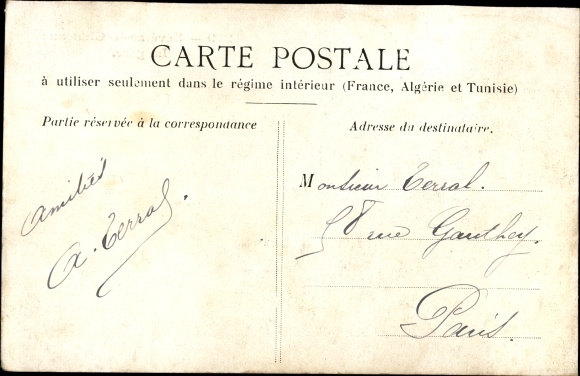 CARTE POSTALE
à utiliser seulement dans le régime intérieur (France, Algérie et Tunisie)
Partie réservée à la correspondance
Amitiés
A. Terral.
Adresse du destinataire.
Monsieur Terral.
58 rue Gauthey.
Paris.